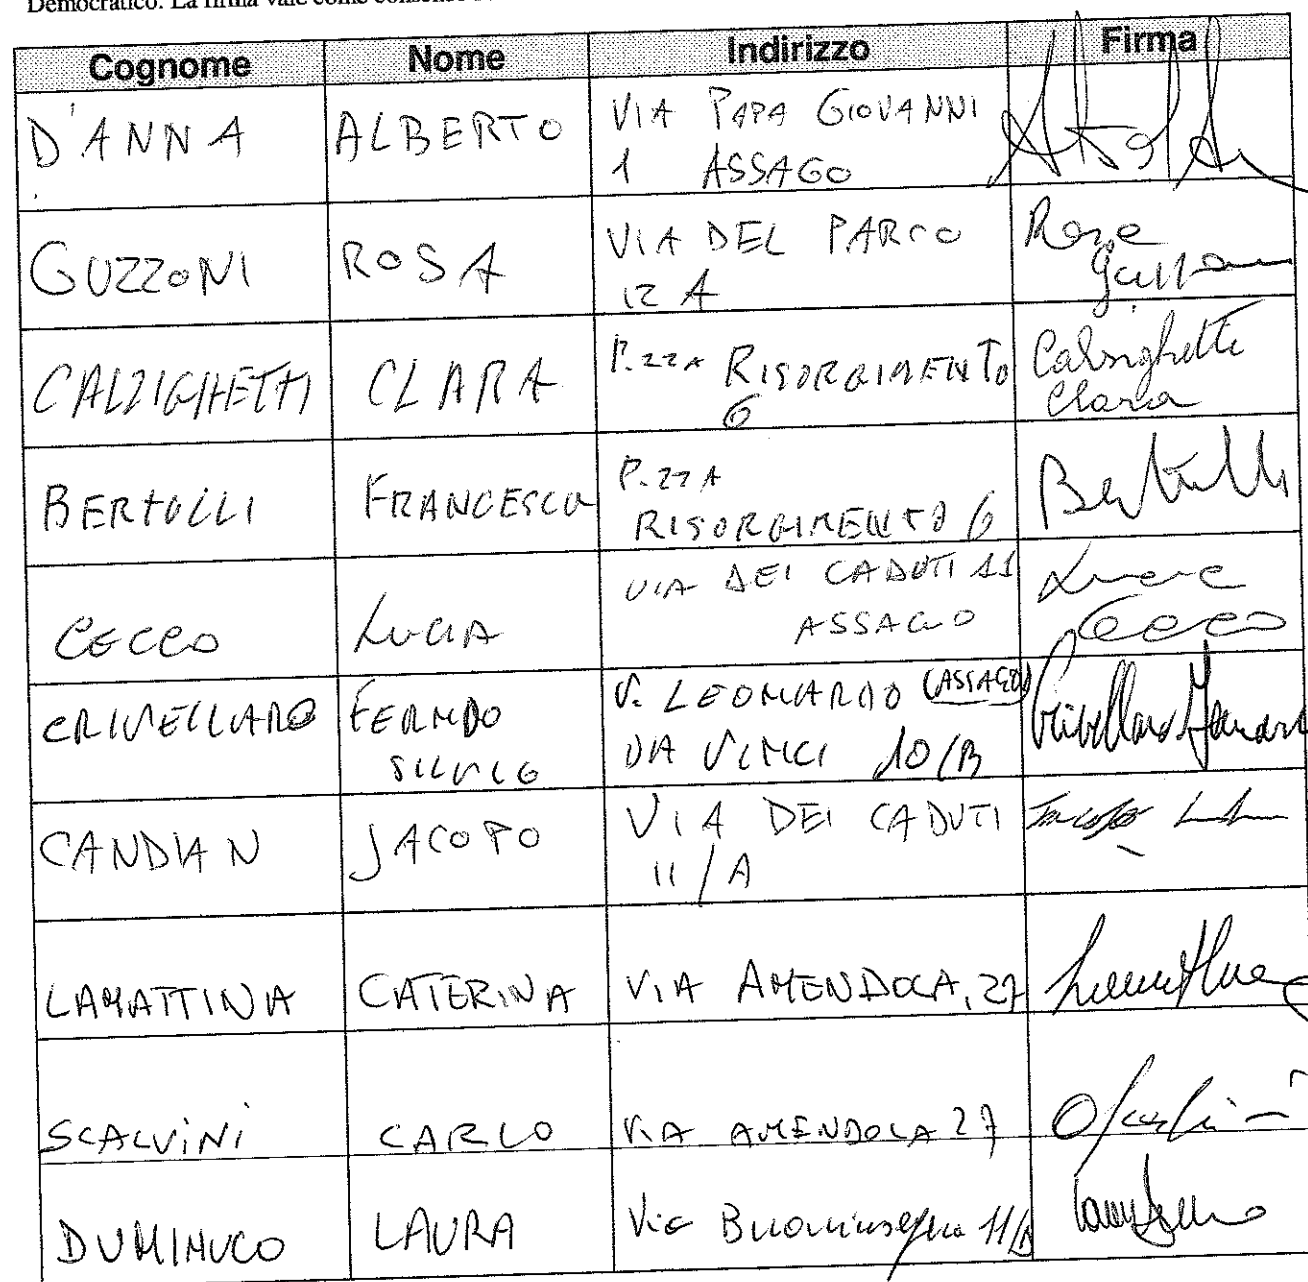 Democratico. La firma vale come consenso
Cognome Nome Indirizzo Firma
D'ANNA ALBERTO VIA PAPA GIOVANNI
1 ASSAGO
GUZZONI ROSA VIA DEL PARCO Rosa
12 A
CALZIGHETTI CLARA P.zza RISORGIMENTO Calzighetti
6 Clara
BERTOLLI FRANCESCO P.zza Bertolli
RISORGIMENTO 6
CECCO LUCIA VIA DEI CADUTI 11 Lucia
ASSAGO Cecco
CRIVELLARO FERNDO V. LEONARDO (ASSAGO)
SILVIO DA VINCI 10/B
CANDIAN JACOPO VIA DEI CADUTI
11/A
LAMATTINA CATERINA VIA AMENDOLA, 27
SCALVINI CARLO VIA AMENDOLA 27
LAURA Via Buoninsegna